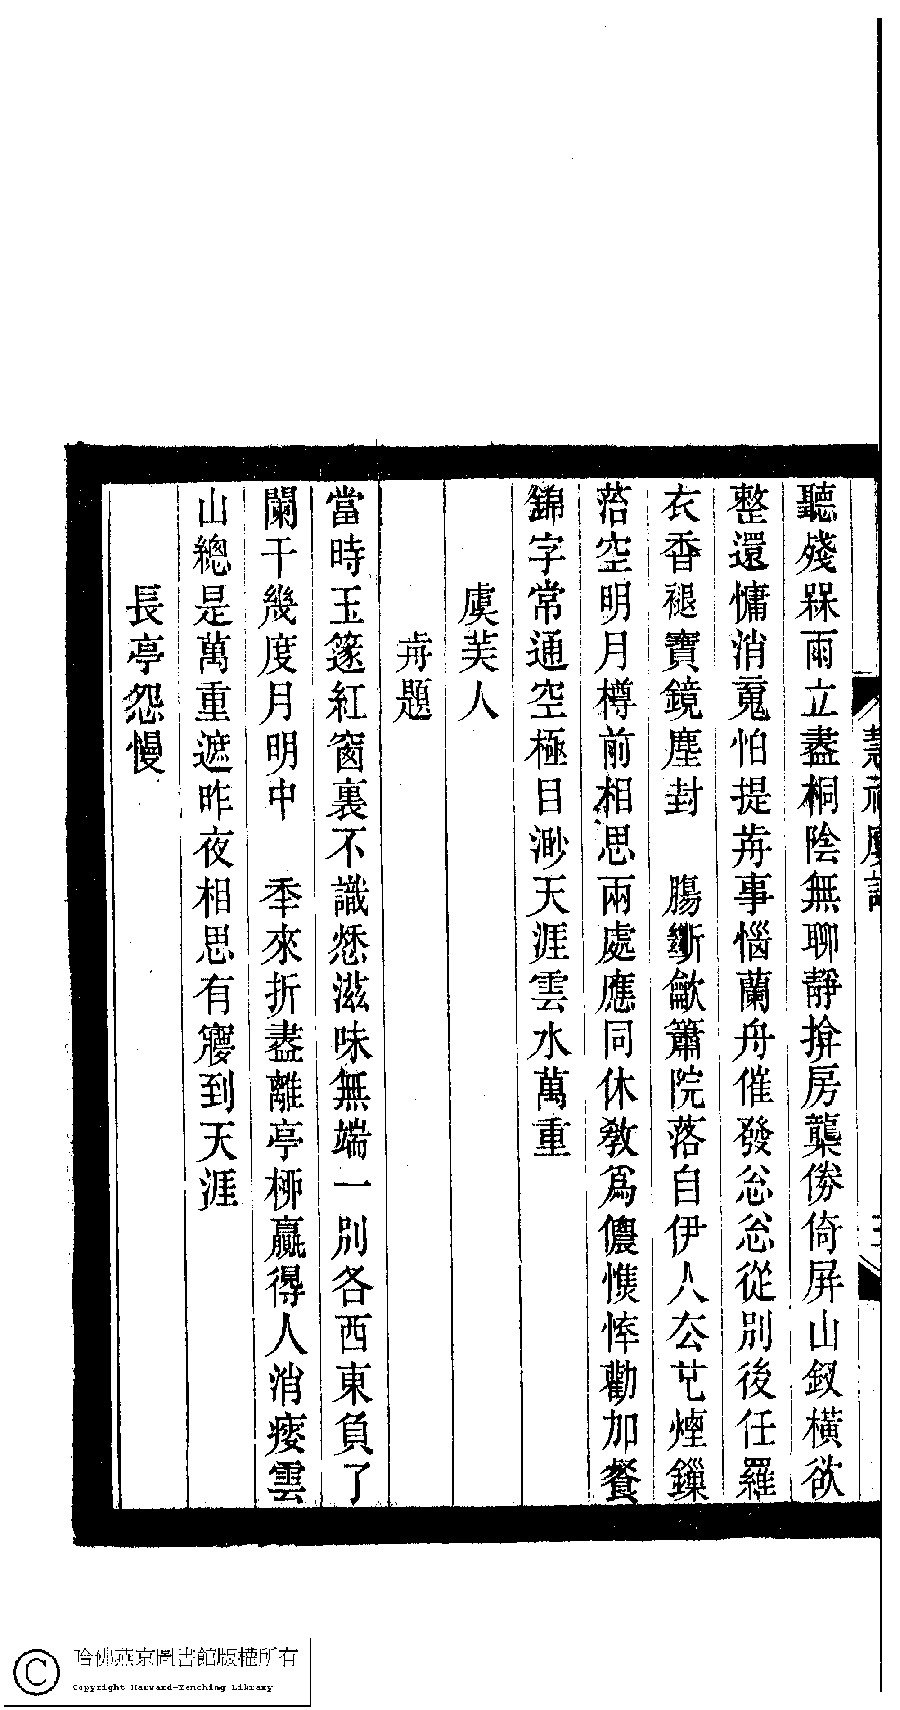 慧福廔詞
聽殘槑雨立盡桐陰無聊靜揜房櫳傍倚屏山釵橫欲
整還慵消䰟怕提歬事惱蘭舟催發怱怱從別後任羅
衣香褪寶鏡塵封　腸斷歙簫院落自伊人厺芤煙鏁
菭空明月樽前相思兩處應同休敎爲儂憔悴勸加餐
錦字常通空極目渺天涯雲水萬重
虞美人
歬題
當時玉篴紅窗裏不識愁滋味無端一別各西東負了
闌干幾度月明中　秊來折盡離亭桺贏得人消瘦雲
山總是萬重遮昨夜相思有㝱到天涯
長亭怨慢
哈佛燕京圖書館版權所有
Copyright Harvard-Yenching Library